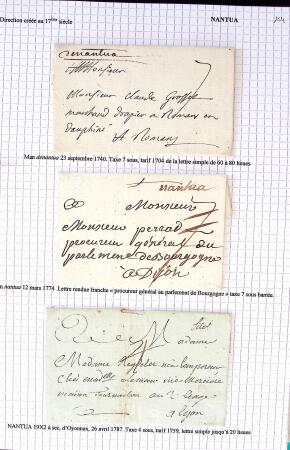 Direction créée au 17ème siècle NANTUA
denantua
Monsieur
Monsieur claude
marchand drapier a Romans en
dauphiné A Romans
Man denantua 23 septembre 1740. Taxe 7 sous, tarif 1704 de la lettre simple de 60 à 80 lieues
nantua
Monsieur
Monsieur perrad
procureur général au
parlement de Bourgogne
a Dijon
nantua 12 mars 1774. Lettre rendue franche « procureur général au parlement de Bourgogne » taxe 7 sous barrée.
Madame
Madame
a Lyon
NANTUA 19X2 à sec, d'Oyonnax, 26 avril 1787. Taxe 4 sous, tarif 1759, lettre simple jusqu'à 20 lieues